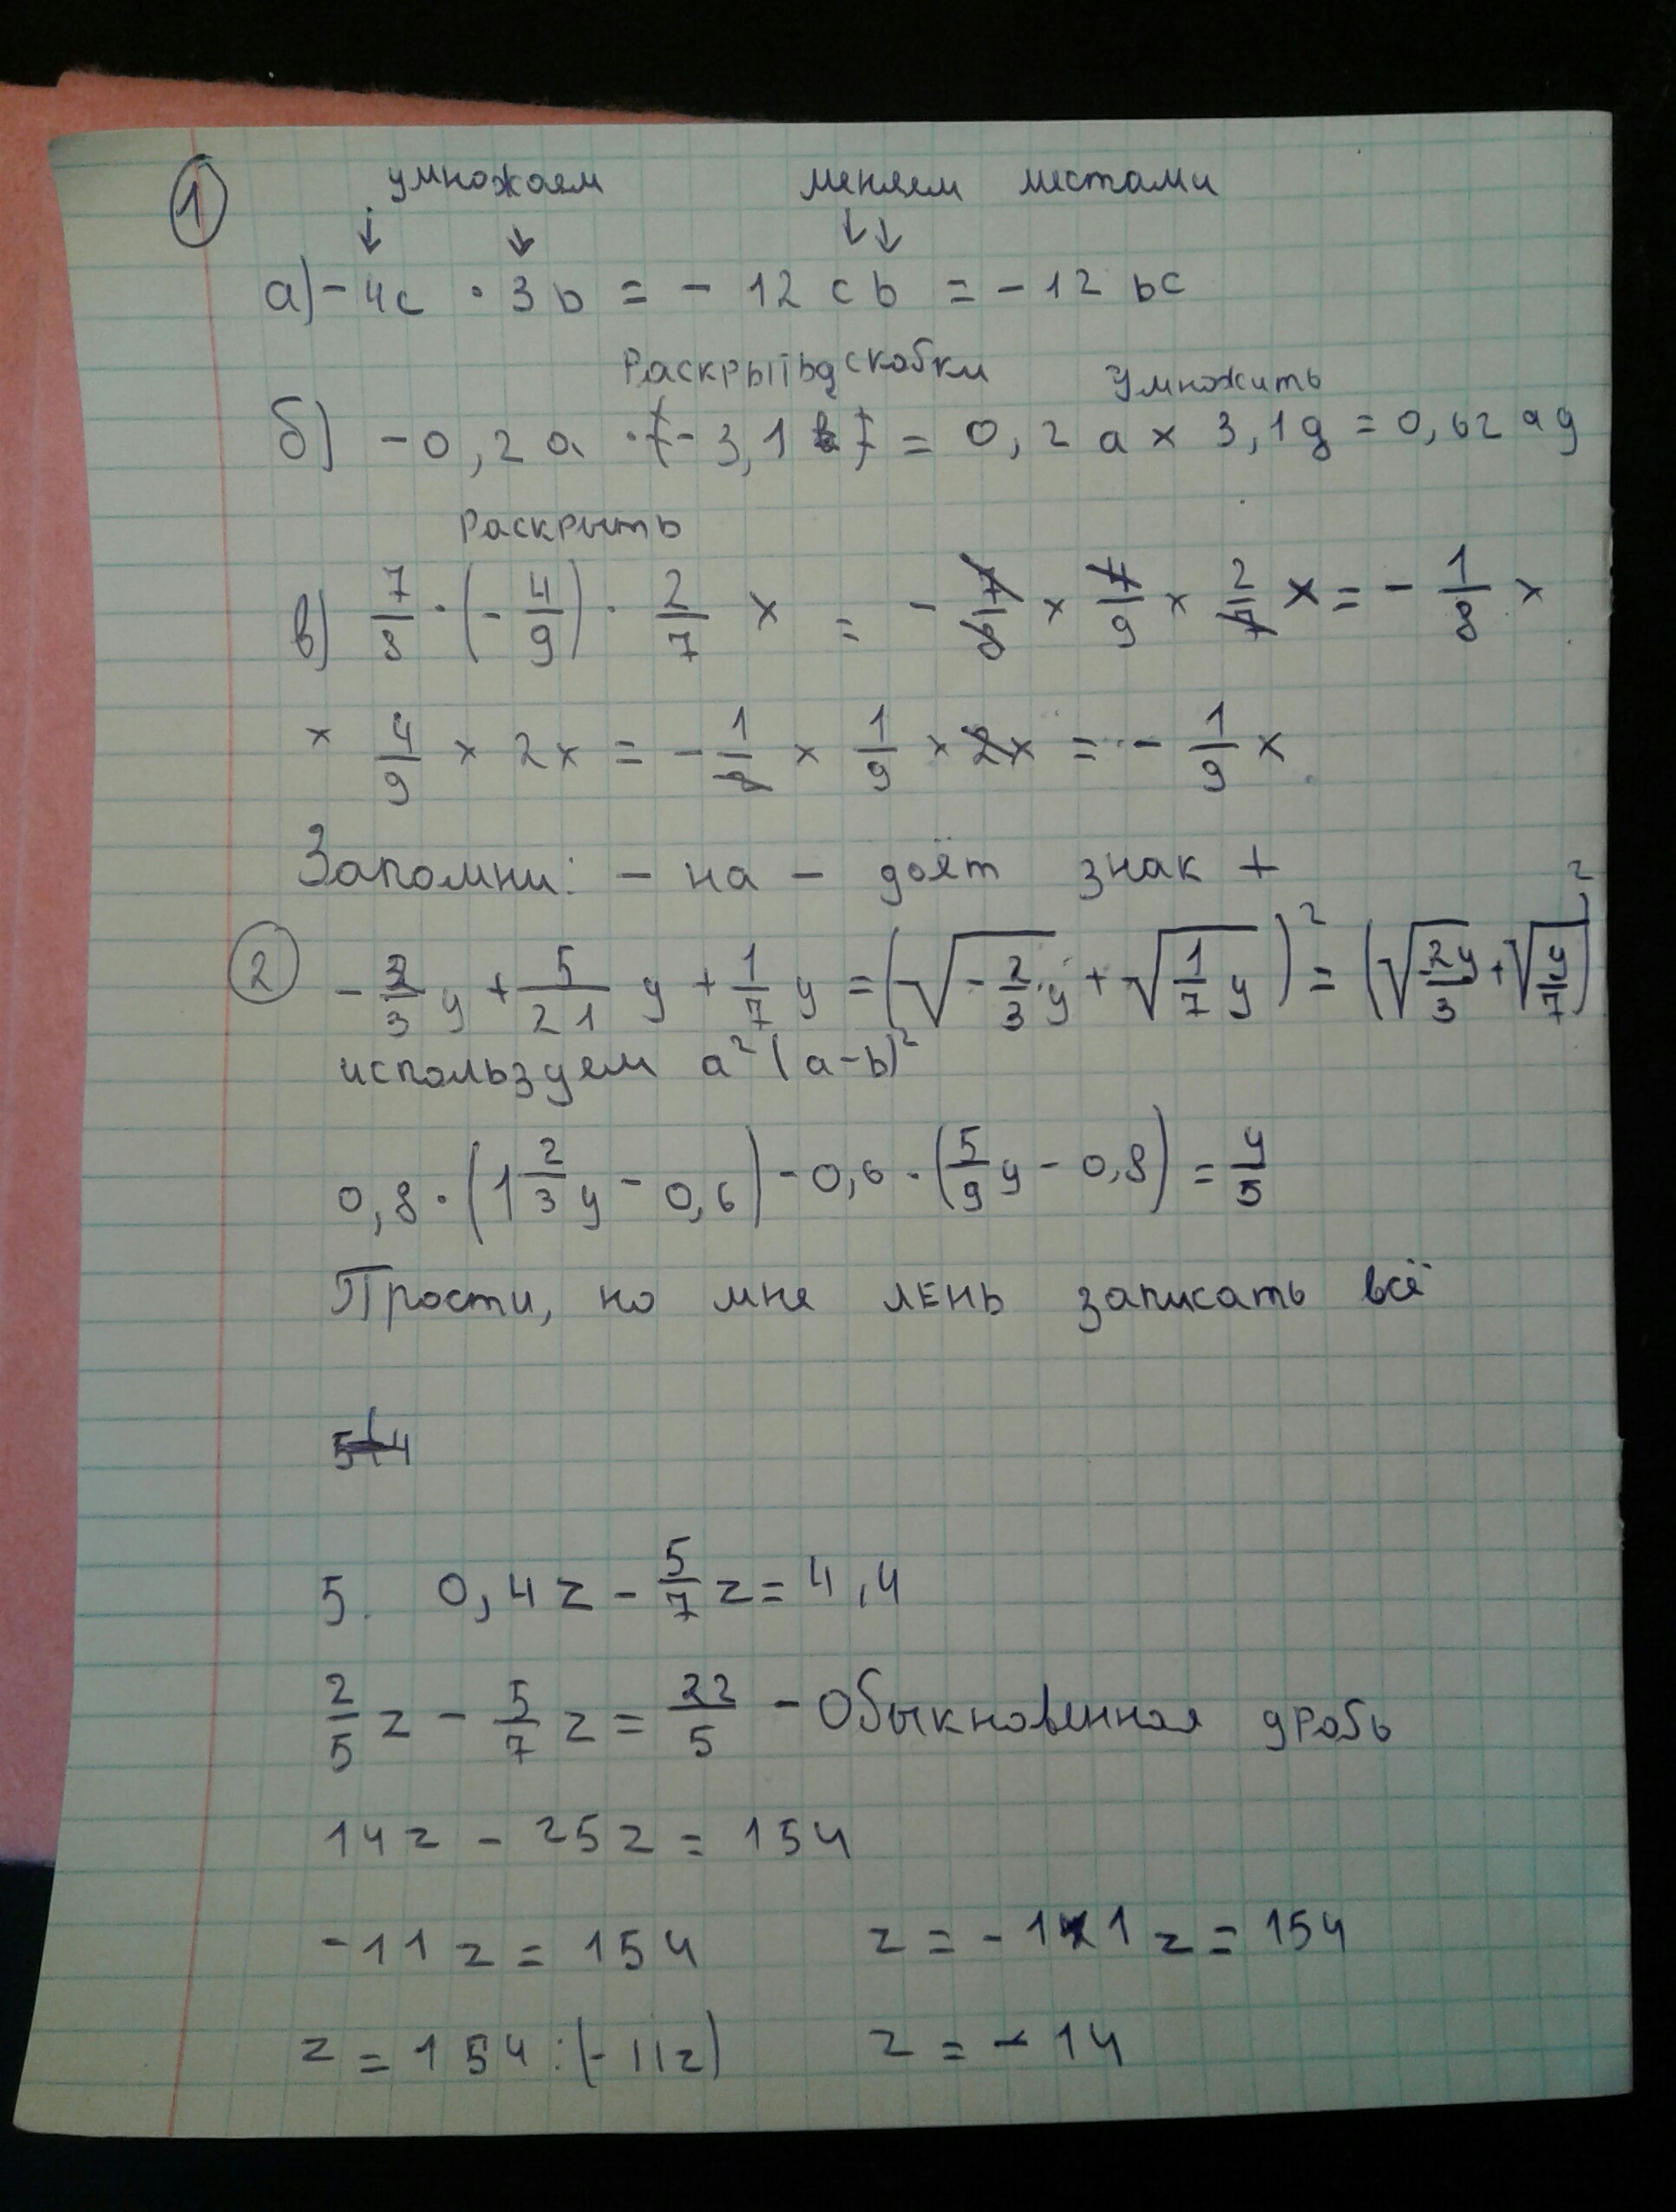 1
умножаем меняем местами
↓ ↓ ↓↓
а) -4c · 3b = - 12 cb = -12 bc
Раскрыть скобки умножить
б) -0,2a · (-3,1 ) = 0,2 a × 3,1g = 0,62 ag
Раскрыть
в) 7/8 · (-4/9) · 2/7 x = - 7/8 × 4/9 × 2/7 x = - 1/8 ×
× 4/9 × 2x = - 1/2 × 1/9 × 2x = - 1/9 x
Запомни: - на - даёт знак +
2 -2/3 y + 5/21 y + 1/7 y = (√(-2/3 y) + √(1/7 y))² = (√(2y/3) + √(y/7))²
используем a² (a-b)²
0,8 · (1 2/3 y - 0,6) - 0,6 · (5/9 y - 0,8) = y/5
Прости, но мне лень записать всё
5. 0,4z - 5/7 z = 4,4
2/5 z - 5/7 z = 22/5 - Обыкновенная дробь
14z - 25z = 154
-11z = 154 z = -11z = 154
z = 154 : (-11z) z = -14